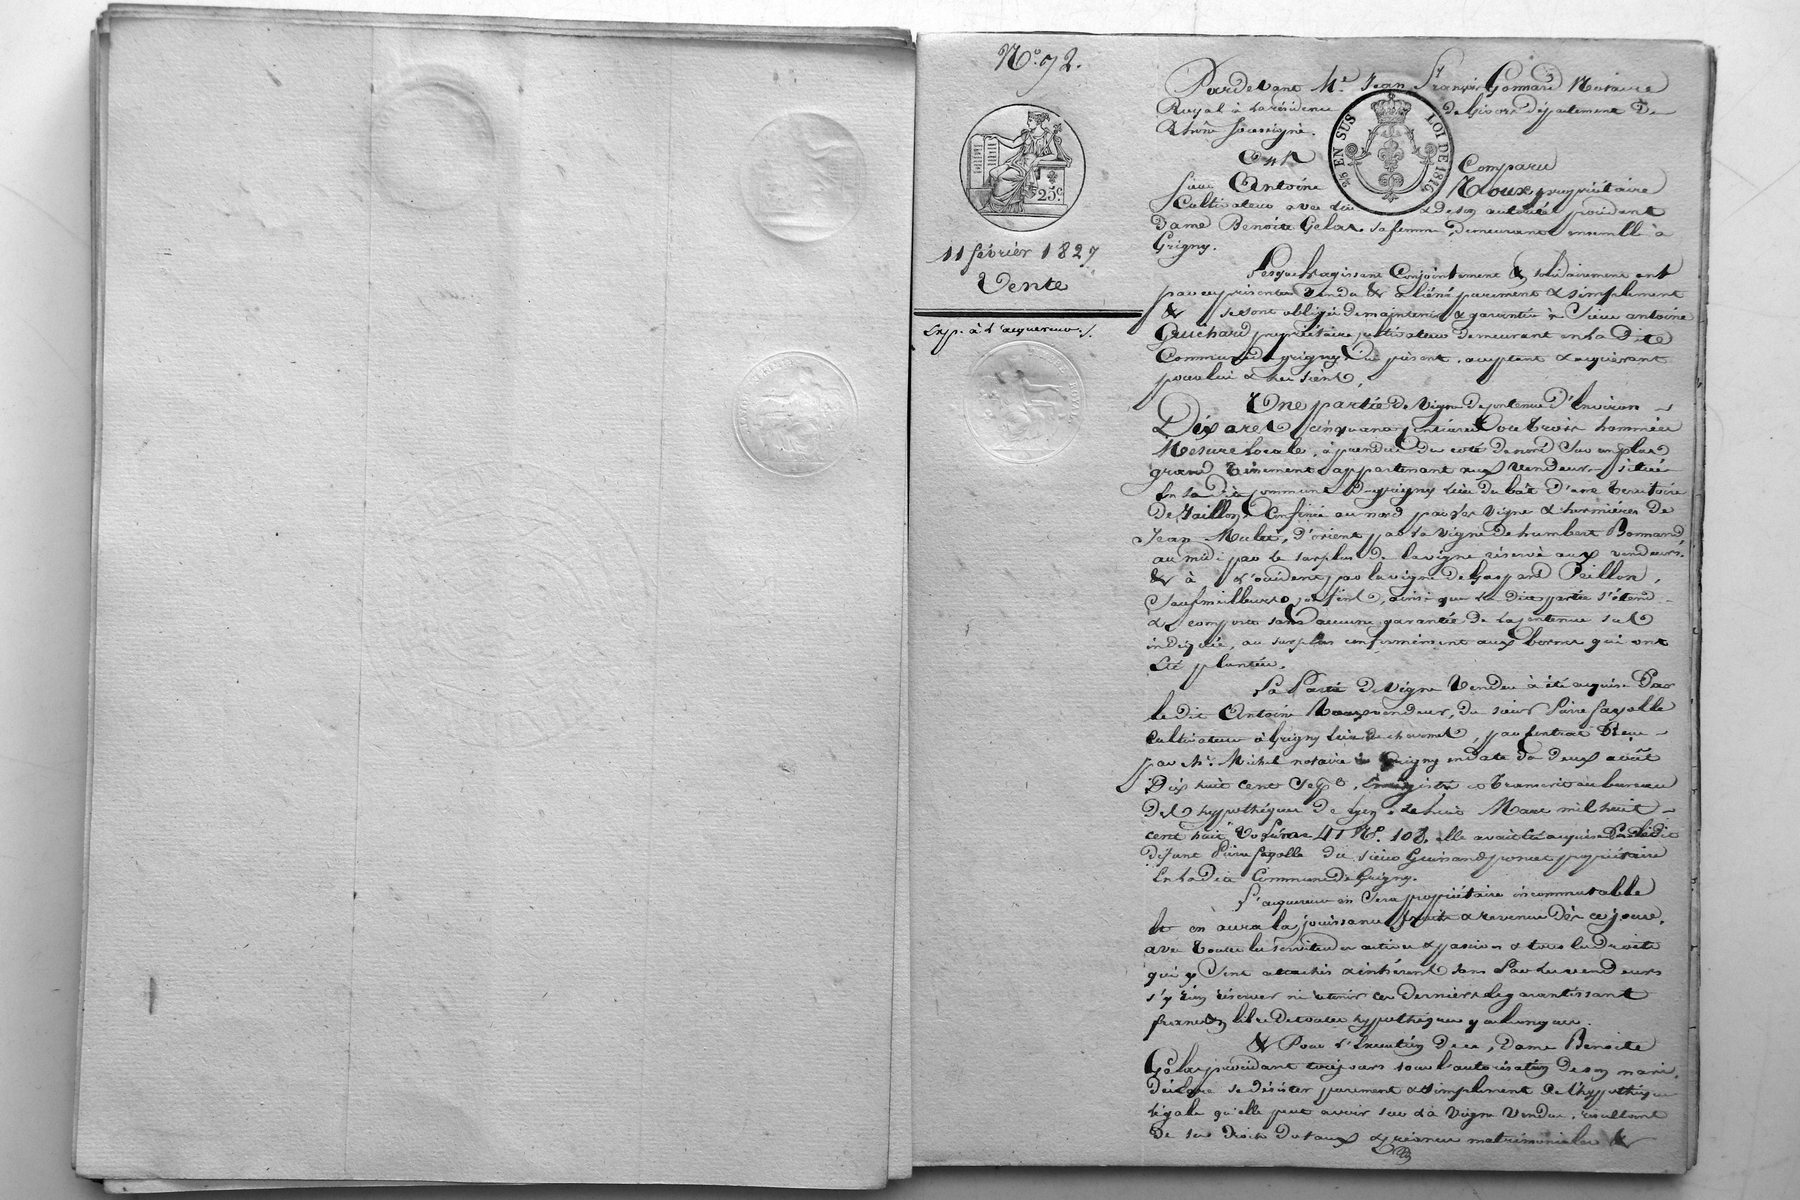 N.° 92.
25 c.
11 février 1827
Vente
Exp. à l'acquereur./.
25 EN SUS LOI DE 1816
Pardevant Me. Jean François Gonnard Notaire
Royal à la résidence de Givors département du
Rhône soussigné.
Est Comparu
sieur Antoine Roux propriétaire
Cultivateur avec lui & de son autorité procédant
Dame Benoite Gelas sa femme, demeurants ensemble à
Grigny.
Lesquels agissant Conjointement & solidairement ont
par ces présentes vendu & aliéné purement & simplement
& se sont obligés de maintenir & garantir à Sieur antoine
Guichard propriétaire cultivateur demeurant en la Dite
Commune de grigny ici présent, acceptant & acquérant
pour lui & les siens,
Une partie de Vigne de contenue d'Environ
Dix ares cinquante centiares ou trois hommées
Mesure Locale, à prendre du coté de nord sur un plus
grand tènement appartenant aux Vendeurs, située
En la dite commune de grigny lieu du bât d'ane territoire
De Jaillon, Confinée au nord par les Vigne & hermières de
Jean Mulet, d'orient par la Vigne de humbert Bonnand,
au midi par le surplus de la vigne réservé aux vendeurs.
& à l'occident par la vigne de Gaspard Peillon,
Sauf meilleurs confins, ainsi que la dite partie s'étend
& comporte sans aucune garantie de la contenue sus
indiquée, au surplus conformément aux bornes qui ont
été plantées.
La Partie de Vigne Vendue à été acquise Par
le dit Antoine Roux vendeur, du sieur Pierre fayolle
Cultivateur à Grigny lieu du charmet, par Contrat Reçu
par Me. Michel notaire à Grigny en date du deux août
Dix huit cent Sept, Enregistré & transcrit au bureau
Des hypothéques de Lyon le huit Mars mil huit
cent huit Volume 41 No. 103, elle avait été acquise Par le dit
défunt Pierre fayolle du sieur ponset propriétaire
En la dite Commune de Grigny.
L'acquereur en Sera propriétaire incommutable
Et en aura la jouissance fruits & revenus Dès ce jour,
avec toutes les servitudes actives & passives & tous les droits
qui y Sont attachés & inhérents sans Par les vendeurs
s'y rien réserver ni retenir ces Derniers la garantissant
franche & libre de toutes hypothéques quelconques.
& Pour l'Exécution de ce, Dame Benoite
Gelas procédant toujours sous l'autorisation de son mari,
déclare se désister purement & simplement de l'hypothéque
légale qu'elle peut avoir sur la Vigne Vendue, résultant
De ses Droits Dotaux & créances matrimoniales &